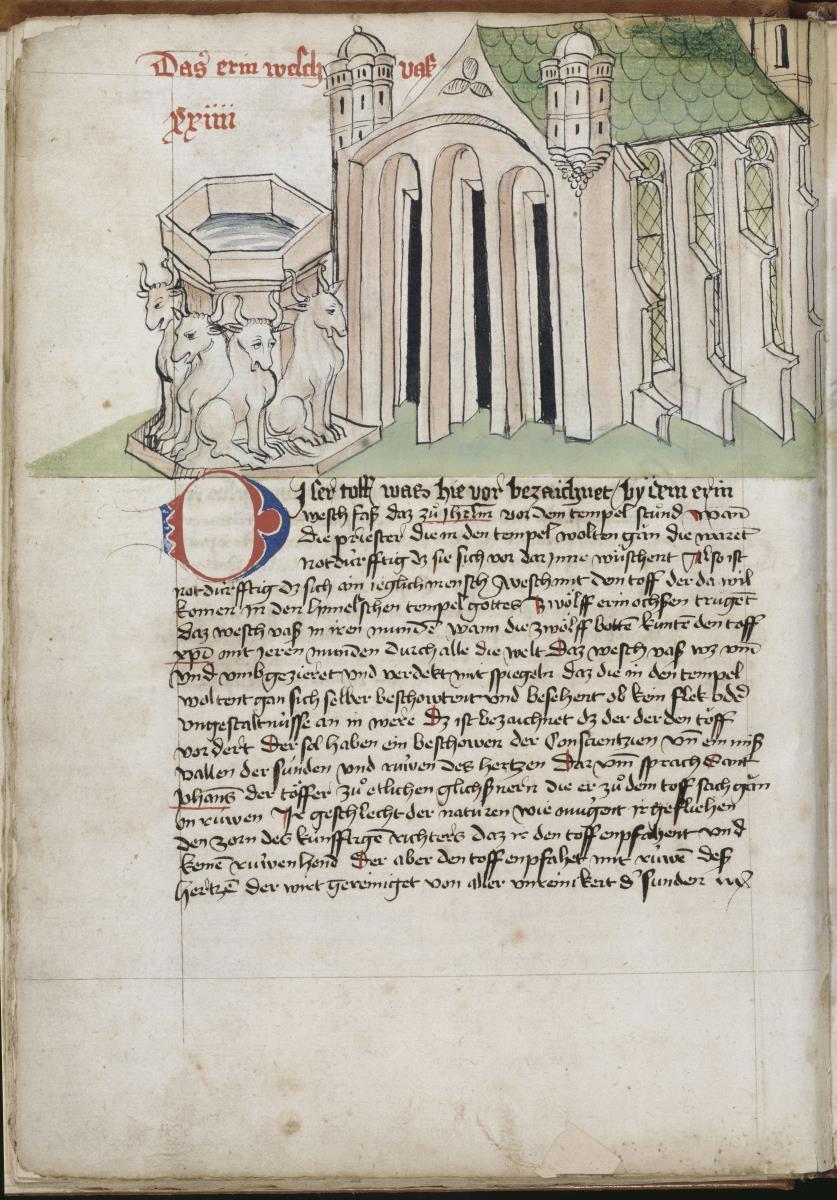 Das erin wesch vaß
xxiiii
Diser toff was hie vor bezaichnet / by dem erin
wesch faß daz zů Jhrlm vor dem tempel stůnd wan̄
die priester die in den tempel wolten gān die warēt
notdürfftig dz sie sich vor dar jnne wůschent Also ist
notdürfftig dz sich ain ieglich mensch wesch mit dem toff der da wil
komen in den himelschen tempel gottes Zwölff erin ochsen trugēt
daz wesch vaß in iren munde wann die zwölff bottē kuntē den toff
xpī mit jeren munden durch alle die welt Daz wesch vaß wz vm̄
vnd vmb gezieret vnd verdekt mit spiegeln daz die in den tempel
woltent gan sich selber beschowtent vnd besehent ob kein flek odē
vngestaltnüsse an in were Dz ist bezaichnet dz der der den toff
vordert Der sol haben ein beschowen der Conscientzien vn̄ ein miß
vallen der sünden vnd rüwen des hertzen Dar vm̄ sprach Sant
Johans der töffer zů etlichen glichßnern die er zů dem toff sach gān
on rüwen Ir geschlecht der naturen wie mugent ir gefliehen
den zorn des künfftigē richters daz ir den toff enpfahent vnd
kenē rüwen hend Der aber den toff enpfahet mit rüwē deß
hertzē der wirt gereiniget von aller vnreinikeit d' sunden